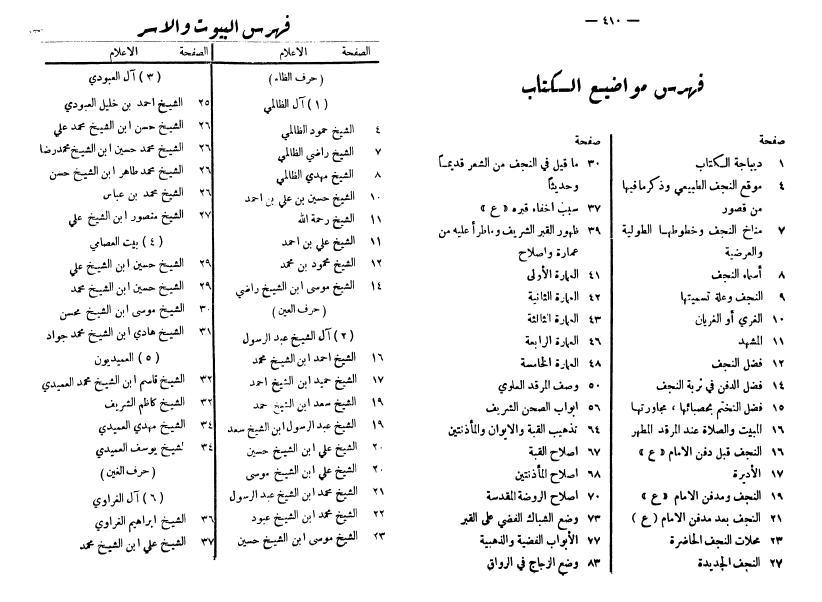 — ٤١٠ —
فهرس مواضيع الكتاب
صفحة
١ ديباجة الكتاب
٤ موقع النجف الطبيعي وذكر مافيها
من قصور
٧ مناخ النجف وخطوطها الطولية
والعرضية
٨ أسماء النجف
٩ النجف وعلة تسميتها
١٠ الغري أو الغريان
١١ المشهد
١٢ فضل النجف
١٤ فضل الدفن في تربة النجف
١٥ فضل التختم بحصبائها ، مجاورتها
١٦ المبيت والصلاة عند المرقد المطهر
١٦ النجف قبل دفن الامام « ع »
١٧ الأديرة
١٩ النجف ومدفن الامام « ع »
٢١ النجف بعد مدفن الامام ( ع )
٢٣ محلات النجف الحاضرة
٢٧ النجف الجديدة
صفحة
٣٠ ما قيل في النجف من الشعر قديماً
وحديثاً
٣٧ سبب اخفاء قبره « ع »
٣٩ ظهور القبر الشريف وماطرأ عليه من
عمارة واصلاح
٤١ العمارة الأولى
٤٢ العمارة الثانية
٤٣ العمارة الثالثة
٤٦ العمارة الرابعة
٤٨ العمارة الخامسة
٥٠ وصف المرقد العلوي
٥٦ ابواب الصحن الشريف
٦٤ تذهيب القبة والايوان والمأذنتين
٦٧ اصلاح القبة
٦٨ اصلاح المأذنتين
٧٠ اصلاح الروضة المقدسة
٧٣ وضع الشباك الفضي على القبر
٧٧ الأبواب الفضية والذهبية
٨٣ وضع الزجاج في الرواق
فهرس البيوت والاسر
الاعلام الصفحة
(حرف الظاء)
(١) آل الظالمي
الشيخ حمود الظالمي ٤
الشيخ راضي الظالمي ٧
الشيخ مهدي الظالمي ٨
الشيخ حسين بن علي بن احمد ١٠
الشيخ رحمة الله ١١
الشيخ علي بن احمد ١١
الشيخ محمود بن محمد ١٢
الشيخ موسى ابن الشيخ راضي ١٤
(حرف العين)
(٢) آل الشيخ عبد الرسول
الشيخ احمد ابن الشيخ محمد ١٦
الشيخ حميد ابن الشيخ احمد ١٧
الشيخ سعد ابن الشيخ حمد ١٩
الشيخ عبد الرسول ابن الشيخ سعد ١٩
الشيخ علي ابن الشيخ حسين ٢٠
الشيخ علي ابن الشيخ موسى ٢٠
الشيخ محمد ابن الشيخ عبد الرسول ٢١
الشيخ محمد ابن الشيخ عبود ٢٢
الشيخ موسى ابن الشيخ حسين ٢٣
الاعلام الصفحة
(٣) آل العبودي
الشيخ احمد بن خليل العبودي ٢٥
الشيخ حسن ابن الشيخ محمد علي ٢٦
الشيخ محمد حسين ابن الشيخ محمدرضا ٢٦
الشيخ محمد طاهر ابن الشيخ حسن ٢٦
الشيخ محمد بن عباس ٢٦
الشيخ منصور ابن الشيخ علي ٢٧
(٤) بيت العصامي
الشيخ حسين ابن الشيخ علي ٢٩
الشيخ حسين ابن الشيخ محمد ٢٩
الشيخ موسى ابن الشيخ محسن ٣٠
الشيخ هادي ابن الشيخ محمد جواد ٣١
(٥) العميديون
الشيخ قاسم ابن الشيخ محمد العميدي ٣٢
الشيخ كاظم الشريف ٣٢
الشيخ مهدي العميدي ٣٤
الشيخ يوسف العميدي ٣٤
(حرف الغين)
(٦) آل الغراوي
الشيخ ابراهيم الغراوي ٣٦
الشيخ علي ابن الشيخ محمد ٣٧